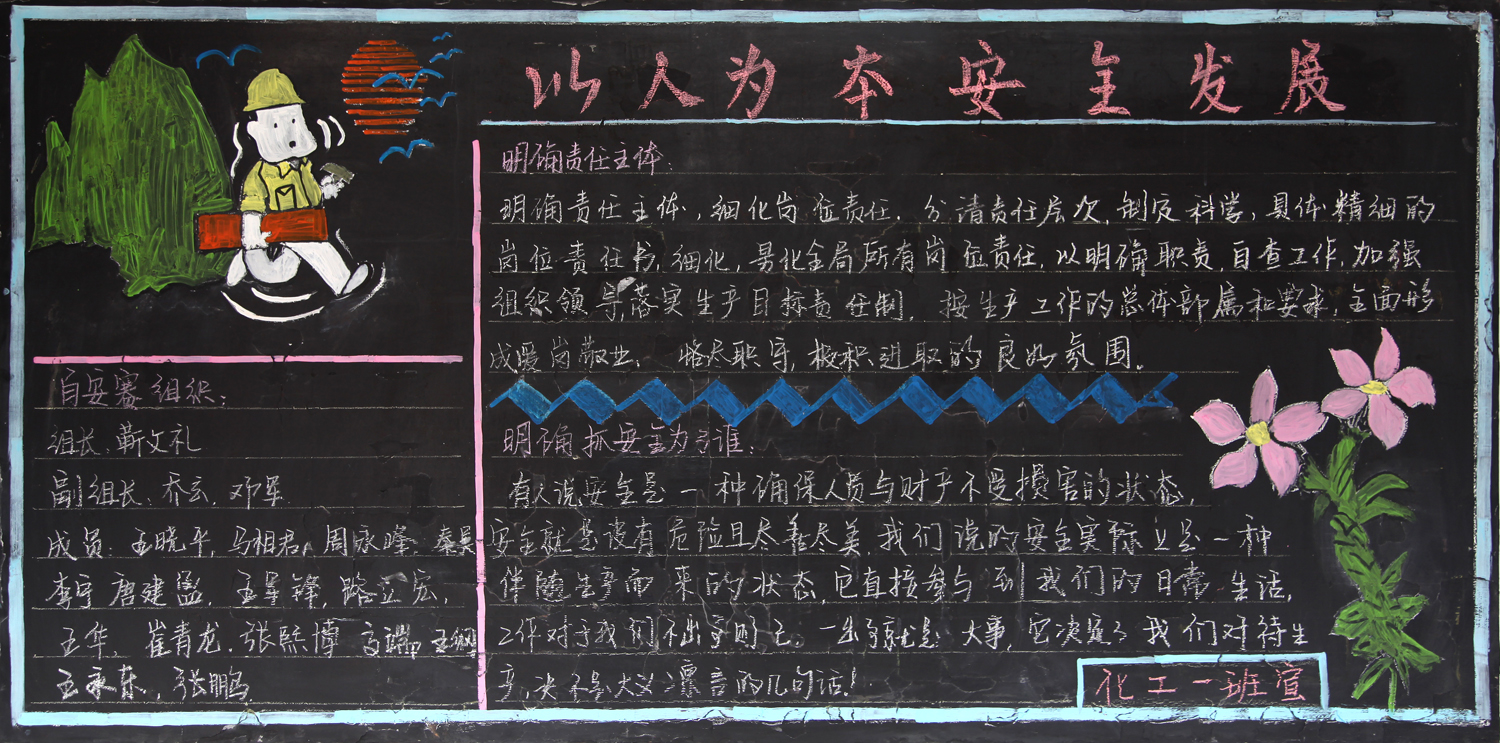 以人为本安全发展
明确责任主体:
明确责任主体，细化岗位责任，分清责任层次，制定科学，具体精细的
岗位责任书，细化，易化全局所有岗位责任，以明确职责，自查工作，加强
组织领导，落实生产目标责任制，按生产工作的总体部属和要求，全面形
成爱岗敬业，恪尽职守，极积进取的良好氛围。
百安赛组织:
组长:靳文礼
副组长:乔云，邓军
成员:王晓平，马相君，周永峰，秦昊
李宁 唐建盈，王军锋，路立宏，
王华，崔青龙，张熙博 高端
王永东，张鹏
明确抓安全为了谁:
有人说安全是一种确保人员与财产不受损害的状态，
安全就是没有危险且尽善尽美，我们说的安全实际上是一种
伴随生产而来的状态，它直接参与到我们的日常生活，
工作对于我们不出事则已，一出事就是大事，它决定了我们对待生
产，决不是大义凛言的几句话!
化工一班宣